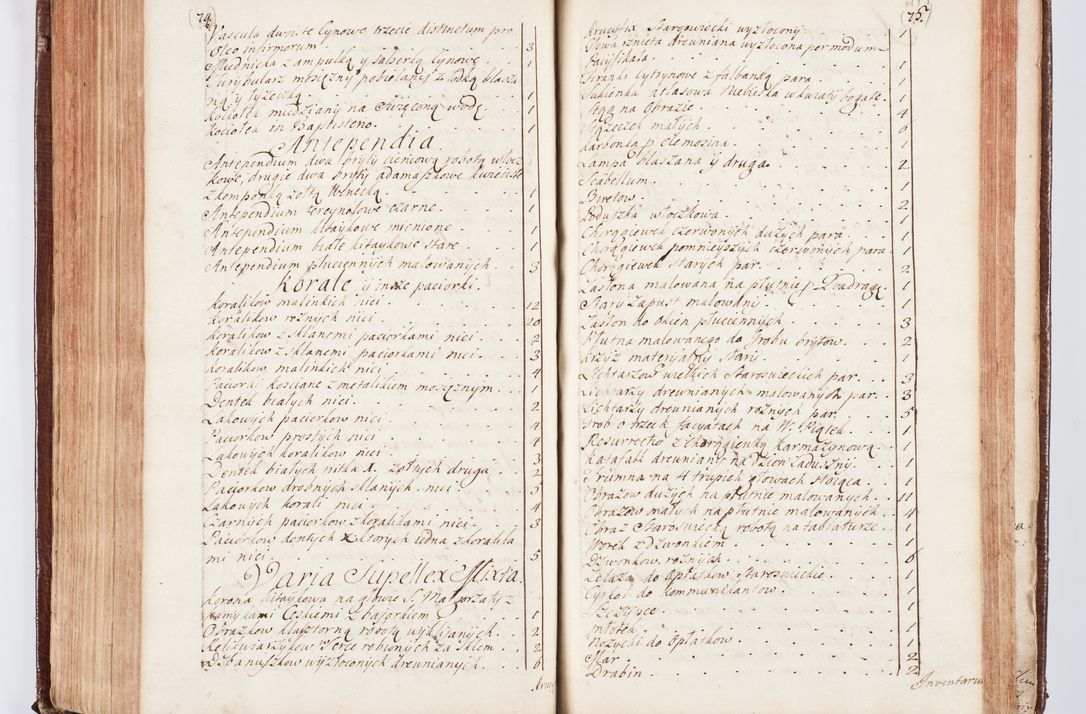 74.
Vascula dwoiste Cynowe trzecie distinctum pro
Oleo infirmorum . . . 3
Miednicka z ampułką y salserką Cynowe . . 1
Turybularz mosiężny pobielany z łodką blasza
ną y łyżeczką . . . 1
Kociołek miedziany na Swięconą wodę . . 1
Kociołek in Baptisterio . . . 1
Antependia
Antependium dwa bryty cieniową robotą włocz
kowe, drugie dwa bryty adamaszkowe kwieciste
z kamponką żołtą . . 1
Antependium tercynelowe czarne . . . 1
Antependium kitaykowe mienione . . . 1
Antependium białe kitaykowe stare . . . 1
Antependium płociennych malowanych . . . 3
Korale y insze paciorki.
Koralikow malinkich nici . . . 12
Koralikow rożnych nici . . . 20
Koralikow z sklanemi paciorkami nici . . . 2
Koralikow z sklanemi paciorkami nici . . . 3
Koralikow malinkich nici . . . 4
Paciorki kościane z metalikiem mosiężnym . . . 1
Dentek białych nici . . . 2
Lakowych paciorkow nici . . . 4
Paciorkow prostych nici . . . 4
Lakowych koralikow nici . . . 3
Dentek białych nitka 1. żołtych druga . . 2
Paciorkow drobnych sklanych nici . . . 5
Lakowych korali nici . . . 4
Czarnych paciorkow z koralikami nici . . . 3
Paciorkow dentych z ktorych iedna z koralika
mi nici . . . 5
Varia Supellex Mixta.
Korona kitaykowa na głowie S. Małgorzaty z
kamykami Czeskiemi z bajorkiem . . . 1
Obrazkow klasztorną robotą wykłuanych . . 2
Relikwiarzykow Serce robionych za sklem . . 2
Dzbanuszkow wyzłoconych drewnianych . . . 6
75.
Krucyfix Staroswiecki wyzłocony . . . 1
Głowa rznięta drewniana wyzłocona per modum
Pacyfikała . . . 1
Firanki Cytrynowe z falbanką para . . . 1
Sukienka atłasowa Niebieska w kwiaty bogate . 1
Stąg na Obrazie . . . 4
Wozeczek małych . . . 6
Karbonka p elemosina . . . 1
Lampa blaszana y druga . . . 2
Scabellum . . . 1
Biretow . . . 2
Poduszka włoczkowa . . . 1
Chorągiewek czerwonych dużych para . . . 1
Chorągiewek pomnieyszych czerwonych para . 1
Chorągiewek starych par . . . 2
Zasłona malowana na płutnie p Quadragę . 1
Stary Zapust malowany . . . 1
Zasłon do Okien płuciennych . . . 3
Płutna malowanego do Grobu brytow . . . 2
Krzyż materyalny stary . . . 1
Lichtarzow wielkich Staroswieckich par . . . 3
Lichtarzy drewnianych malowanych par . . . 3
Lichtarzy drewnianych rożnych par . . . 5
Grob o trzech facyatach na W. Piątek . . . 1
Resurrectio z Chorągiewką Karmazynową . 1
Katafalk drewniany na dzień Zaduszny . . 1
Trumna na 4 trupich głowach stoiąca . . . 1
Obrazow dużych na płutnie malowanych . . 11
Obrazow małych na płutnie malowanych . . 4
Obraz Staroswiecką robotą na tablaturze . . 1
Worek z dzwonkiem . . . 1
Dzwonkow rożnych . . . 6
Zelaza do Opłatkow Staroswieckie . . . 1
Cyrkel do kommunikantow . . . 1
Szczypce . . . 1
Młotek . . . 1
Nożycki do Opłatkow . . . 1
Mar . . . 2
Drabin . . . 2
Inventarium